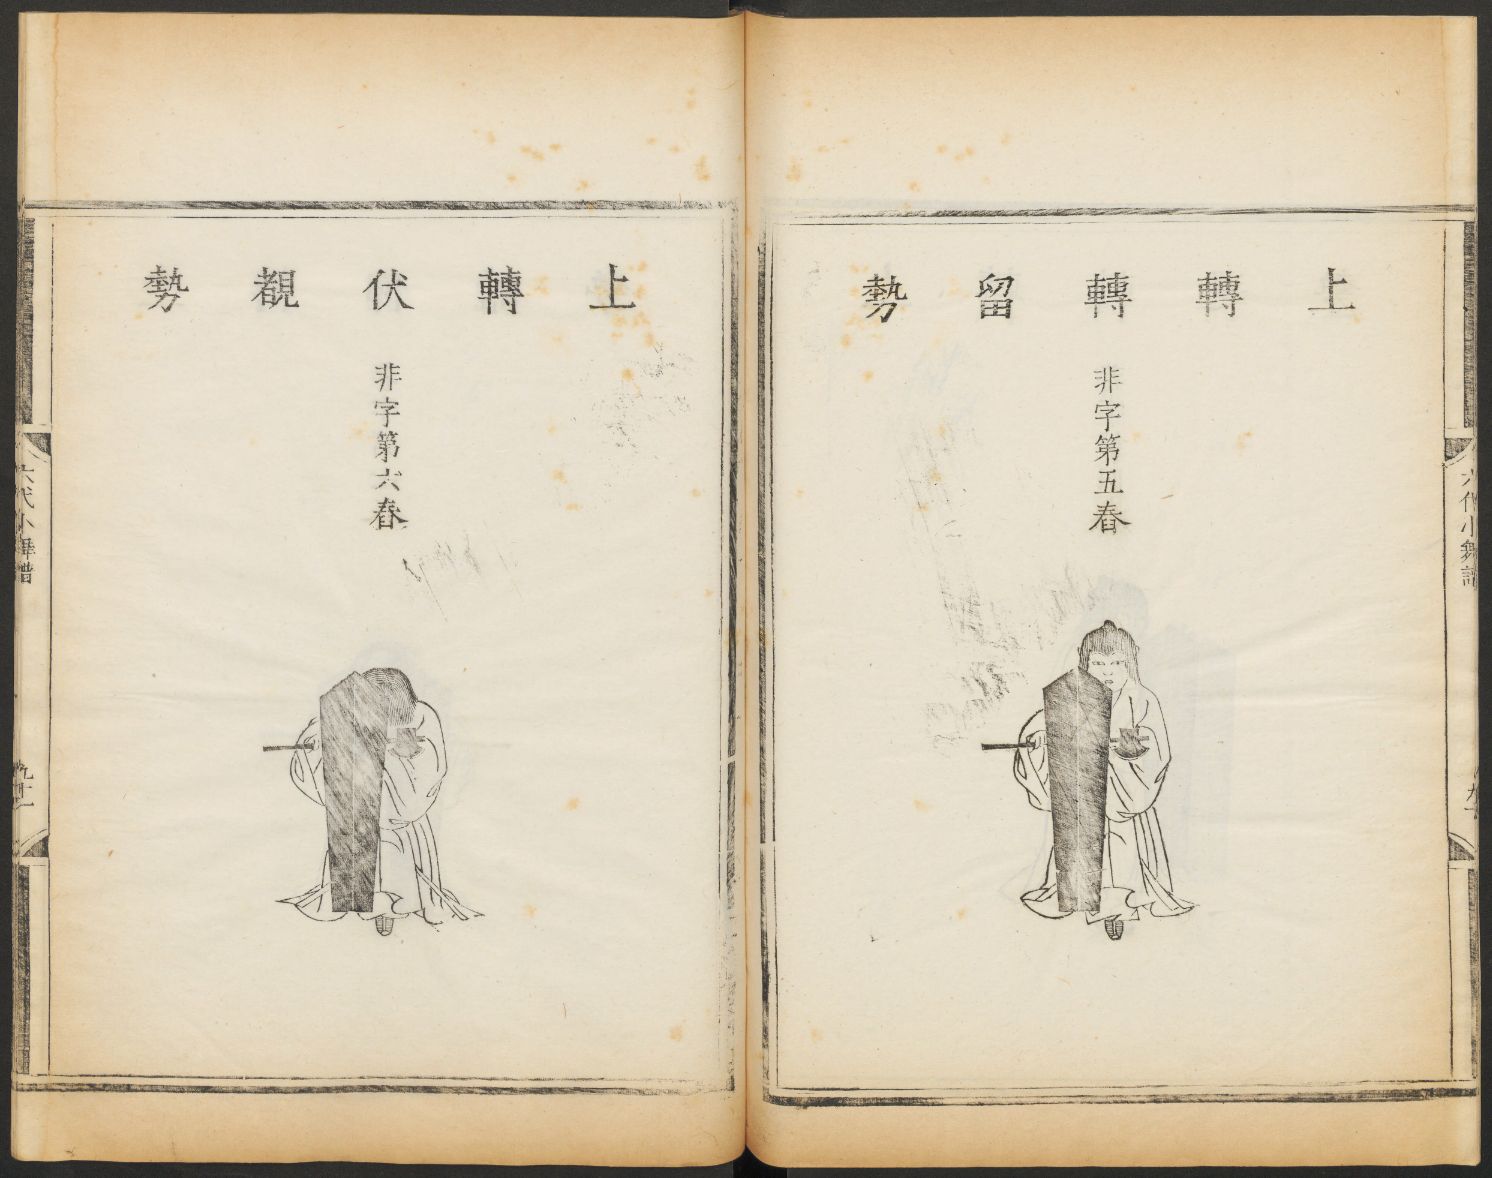 上轉轉留勢
非字第五春
六代小舞譜
九十
上轉伏覩勢
非字第六春
六代小舞譜
九十一